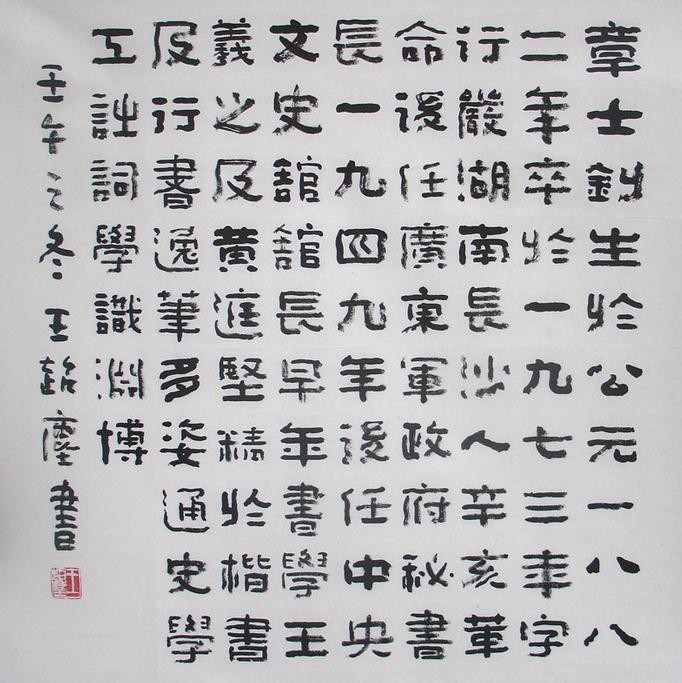 章士釗生於公元一八八
二年卒於一九七三年字
行嚴湖南長沙人辛亥革
命後任廣東軍政府秘書
長一九四九年後任中央
文史館館長早年書學王
義之及黃庭堅精於楷書
及行書逸筆多姿通史學
工詩詞學識淵博
壬午之冬王超塵書